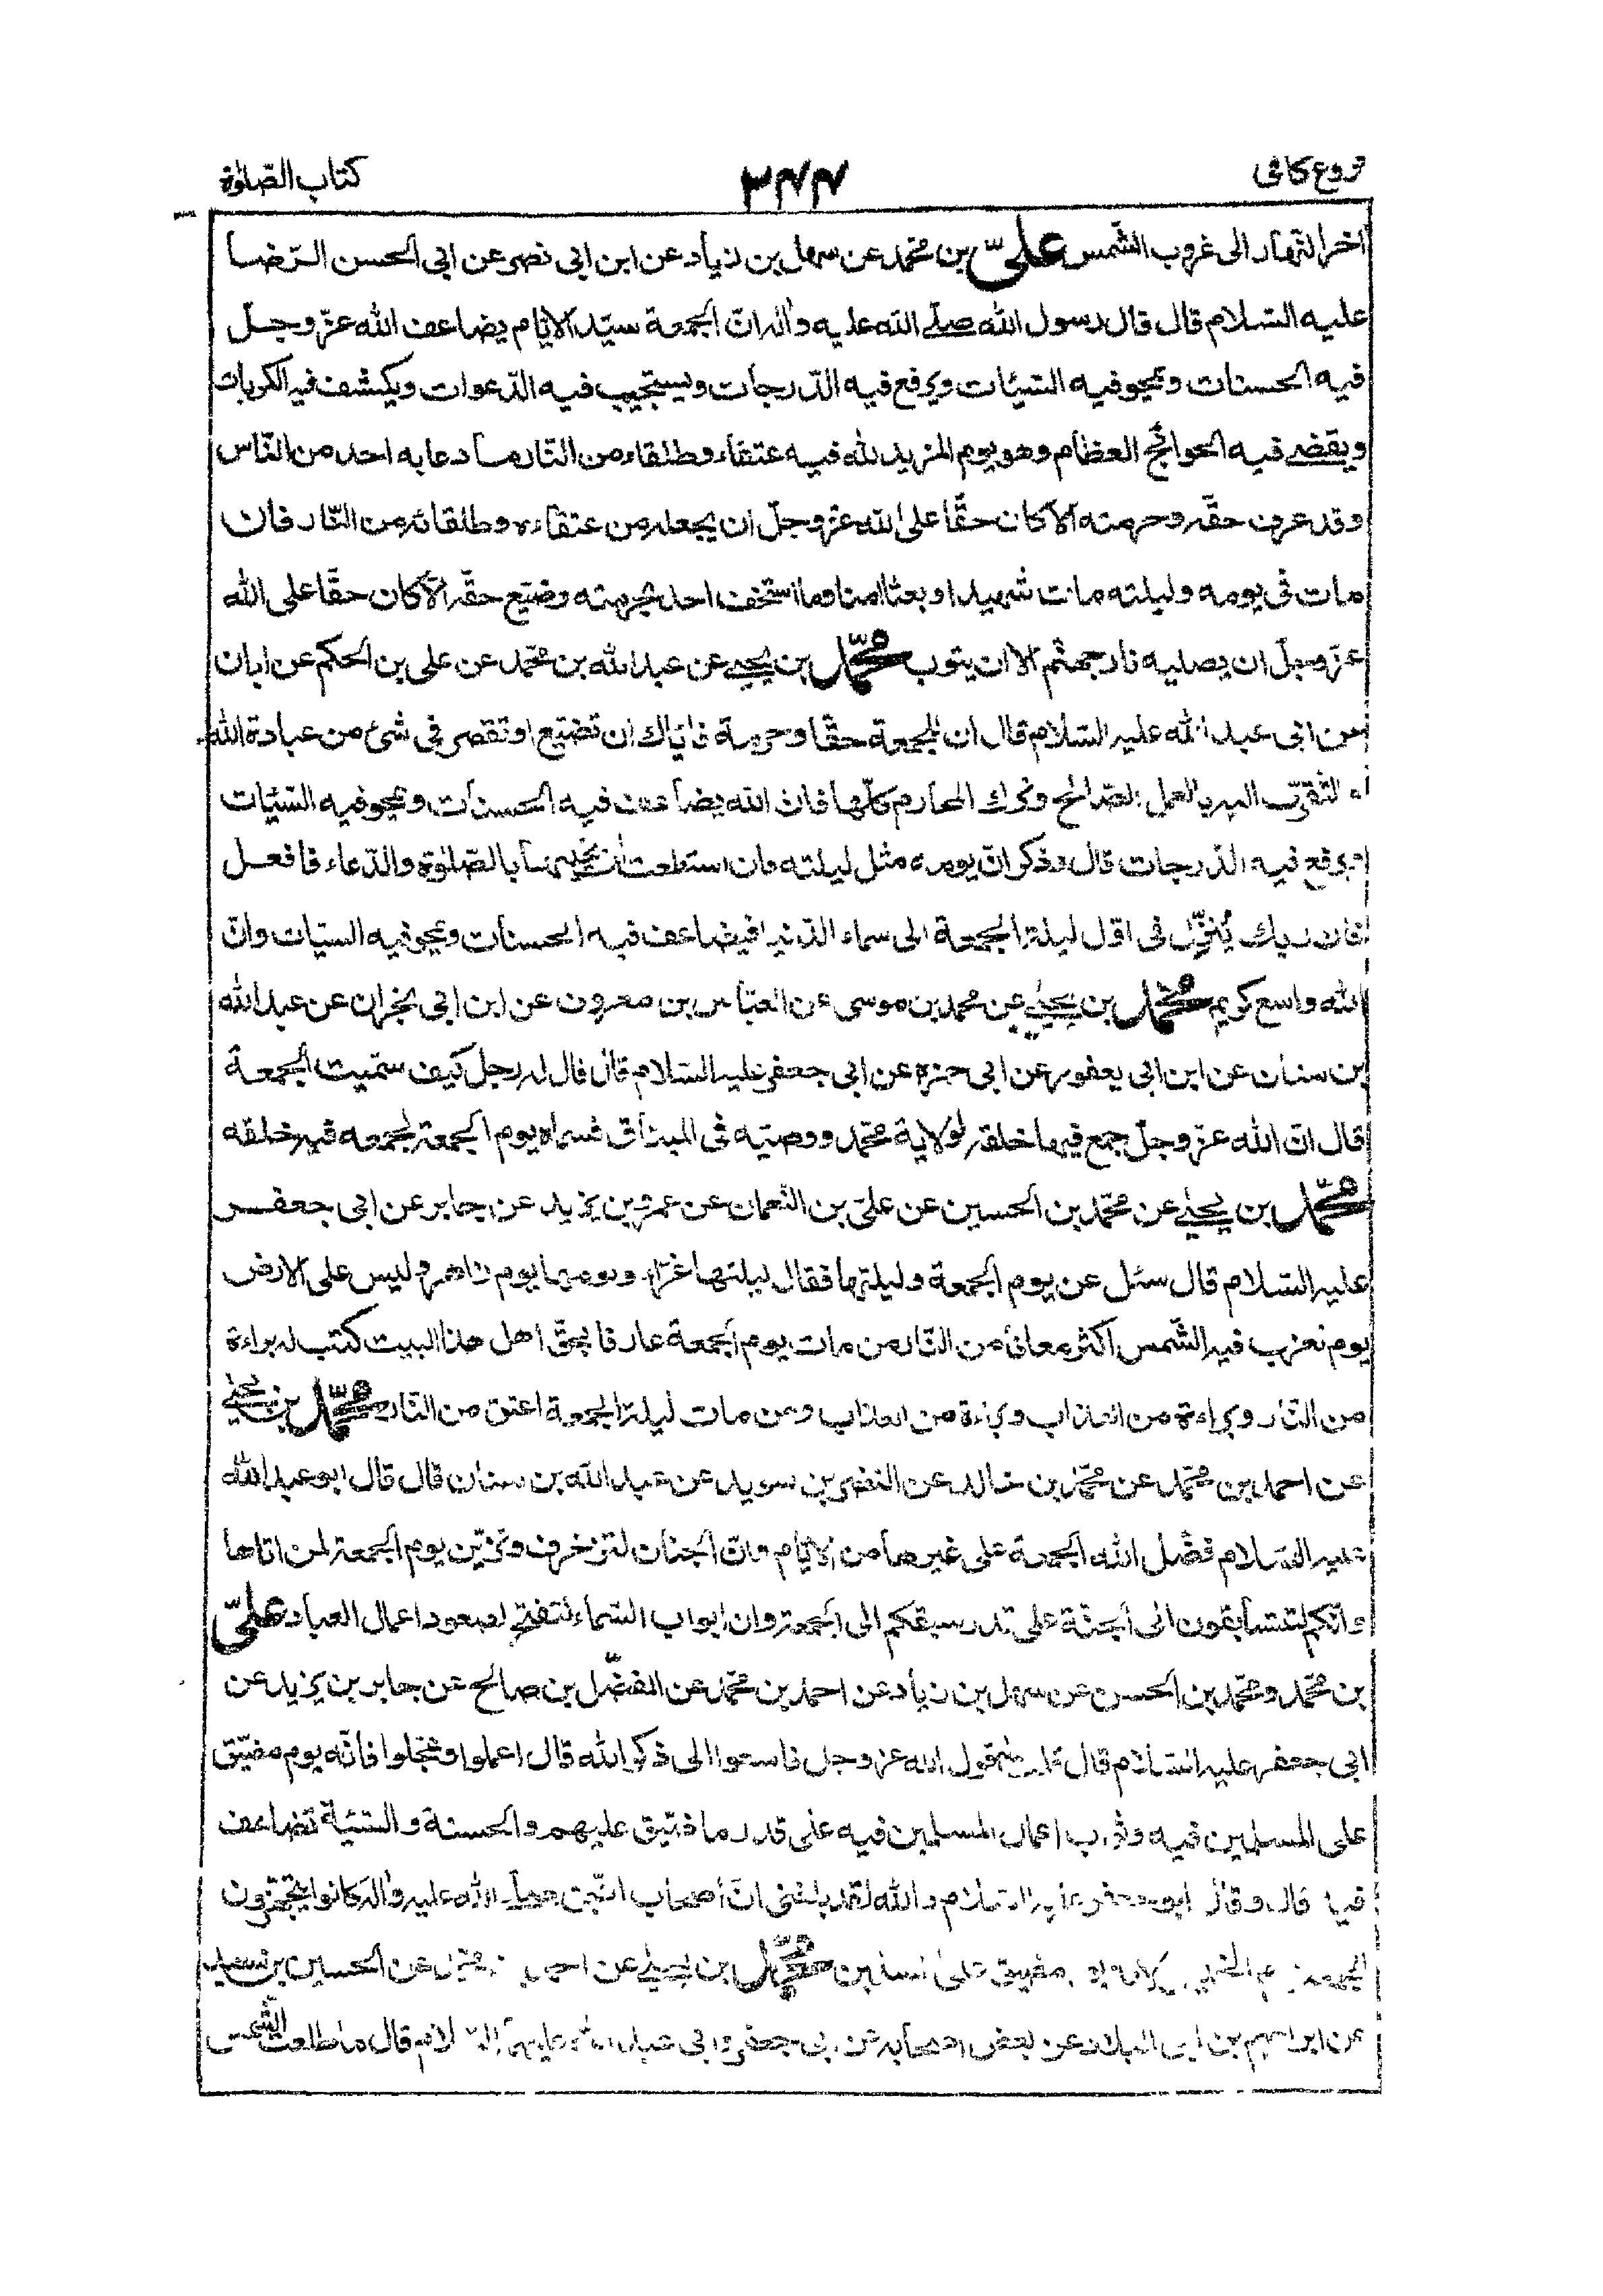 فروع كافى
٣٤٤
كتاب الصّلوٰة
اخر النّهار الى غروب الشّمس علىّ بن محمّد عن سهل بن زياد عن ابن ابى نصر عن ابى الحسن الرّضا
عليه السّلام قال قال رسول الله صلّى الله عليه واله انّ الجمعة سيّد الايّام يضاعف الله عزّ وجلّ
فيه الحسنات ويمحو فيه السّيئات ويرفع فيه الدّرجات ويستجيب فيه الدّعوات ويكشف فيه الكربات
ويقضى فيه الحوائج العظام وهو يوم المزيد لله فيه عتقاء وطلقاء من النّار ما دعا به احد من النّاس
وقد عرف حقّه وحرمته الّا كان حقّا على الله عزّ وجلّ ان يجعله من عتقاءه وطلقائه من النّار فان
مات فى يومه وليلته مات شهيدا وبعث امنا وما استخف احد بحرمته وضيّع حقّه الّا كان حقّا على الله
عزّ وجلّ ان يصليه نار جهنّم الا ان يتوب محمّد بن يحيى عن عبد الله بن محمّد عن على بن الحكم عن ابان
عن ابى عبد الله عليه السّلام قال ان للجمعة حقّا وحرمة فايّاك ان تضيّع او تقصر فى شئ من عبادة الله
والتّقرّب اليه بالعمل الصّالح وترك المحارم كلّها فان الله يضاعف فيه الحسنات ويمحو فيه السّيّات
ويرفع فيه الدّرجات قال وذكر انّ يومه مثل ليلته فان استطعت ان تحييها بالصّلوٰة والدّعاء فافعل
فان ربك يُنزّل فى اوّل ليلة الجمعة الى سماء الدّنيا فيضاعف فيه الحسنات ويمحو فيه السيّات وانّ
الله واسع كريم محمّد بن يحيى عن محمد بن موسى عن العبّاس بن معروف عن ابن ابى نجران عن عبد الله
بن سنان عن ابن ابى يعفور عن ابى حمزه عن ابى جعفر عليه السّلام قال قال له رجل كيف سمّيت الجمعة
قال انّ الله عزّ وجلّ جمع فيها خلقه لولاية محمّد ووصيّه فى الميثاق فسماه يوم الجمعة لجمعه فيه خلقه
محمّد بن يحيى عن محمّد بن الحسين عن علىّ بن النّعمان عن عمر بن يزيد عن جابر عن ابى جعفر
عليه السّلام قال سئل عن يوم الجمعة وليلتها فقال ليلتها غرّاء ويومها يوم زاهر وليس على الارض
يوم تغرب فيه الشّمس اكثر معافى من النّار من مات يوم الجمعة عارفا بحقّ اهل هذا البيت كتب له براءة
من النّار وبراءة من العذاب وبراءة من العذاب ومن مات ليلة الجمعة اعتق من النّار محمّد بن يحيى
عن احمد بن محمّد عن محمّد بن خالد عن النضر بن سويد عن عبد الله بن سنان قال قال ابو عبد الله
عليه السّلام فضّل الله الجمعة على غيرها من الايّام وانّ الجنان لتزخرف وتزيّن يوم الجمعة لمن اتاها
وانّكم لتتسابقون الى الجنّة على قدر سبقكم الى الجمعة وان ابواب السّماء لتفتح لصعود اعمال العباد علىّ
بن محمّد ومحمّد بن الحسن عن سهل بن زياد عن احمد بن محمّد عن المفضّل بن صالح عن جابر بن يزيد عن
ابى جعفر عليه السّلام قال قلت له قول الله عز وجل فاسعوا الى ذكر الله قال اعملوا وعجّلوا فانّه يوم مضيّق
على المسلمين فيه وثواب اعمال المسلمين فيه على قدر ما ضيّق عليهم والحسنة والسّيّئة تضاعف
فيه قال وقال ابو جعفر عليه السّلام والله لقد بلغنى انّ أصحاب النّبىّ صلّى الله عليه واله كانوا يتجهّزون
للجمعة يوم الخميس لانّه يوم مضيق على المسلمين محمّد بن يحيى عن احمد بن محمّد عن الحسين بن سعيد
عن ابراهيم بن ابى البلاد عن بعض اصحابه عن ابى جعفر وابى عبد الله عليهما السّلام قال ما طلعت الشّمس